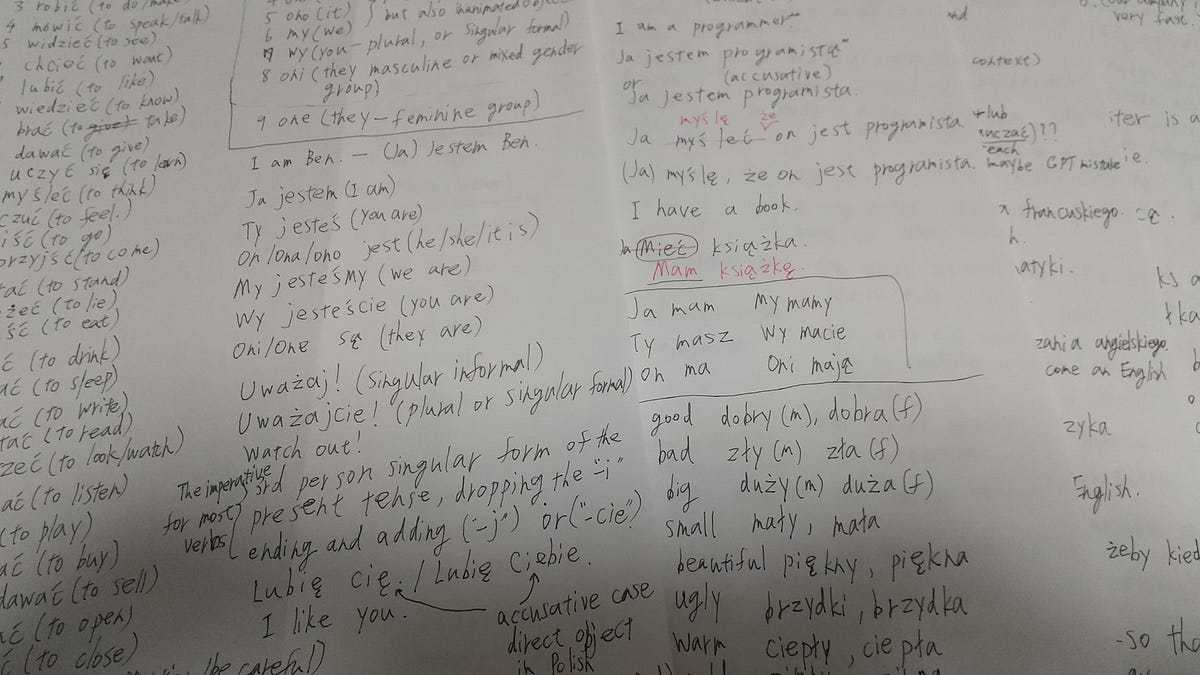 3 robić (to do/make
4 mówić (to speak/talk)
5 widzieć (to see)
chcieć (to want)
lubić (to like)
wiedzieć (to know)
brać (to give) take)
dawać (to give)
uczyć się (to learn)
myśleć (to think)
czuć (to feel.)
iść (to go)
przyjść (to come)
tać (to stand)
żeć (to lie)
ść (to eat)
ć (to drink)
ać (to sleep)
ać (to write)
tać (to read)
zeć (to look/watch)
ać (to listen)
(to play)
ać (to buy)
dawać (to sell)
ać (to open)
ć (to close)
(be careful)
5 ono (it) } but also inanimated object
6 my (we)
7 wy (you - plural, or singular formal)
8 oni (they masculine or mixed gender
group)
9 one (they - feminine group)
I am Ben. - (Ja) Jestem Ben.
Ja jestem (I am)
Ty jesteś (you are)
On/ona/ono jest (he/she/it is)
My jesteśmy (we are)
Wy jesteście (you are)
Oni/one są (they are)
Uważaj! (singular informal)
Uważajcie! (plural or singular formal)
Watch out!
The imperative
for most
verbs
3rd person singular form of the
present tense, dropping the "-i"
ending and adding ("-j") or ("-cie")
Lubię cię. / Lubię Ciebie.
I like you.
accusative case
direct object
in Polish
I am a programmer
Ja jestem programistą"
or (accusative)
Ja jestem programista.
myślę że
Ja myśleć on jest programista
(Ja) myślę, że on jest programista.
I have a book.
Mieć książka.
Mam książkę.
Ja mam My mamy
Ty masz Wy macie
On ma Oni mają
good dobry (m), dobra (f)
bad zły (m) zła (f)
big duży (m) duża (f)
small mały, mała
beautiful piękny, piękna
ugly brzydki, brzydka
warm ciepły, ciepła
and
very fast.
context)
lub
uczać)??
each
maybe GPT mistake
iter is a
ie.
francuskiego
h.
atyki.
ks a
tka
zania angielskiego.
come an English
zyka
English.
żeby kied
-so tha